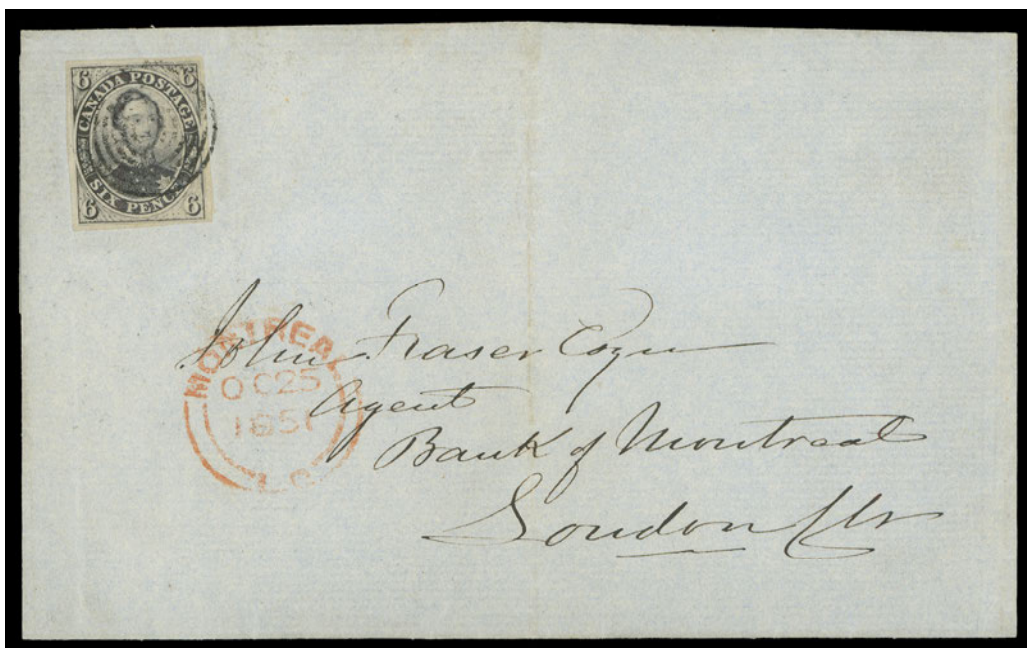 6 6
CANADA POSTAGE
SIX PENCE
6 6
MONTREAL
OC 25
1851
L.C.
John Fraser Esqre
Agent
Bank of Montreal
London